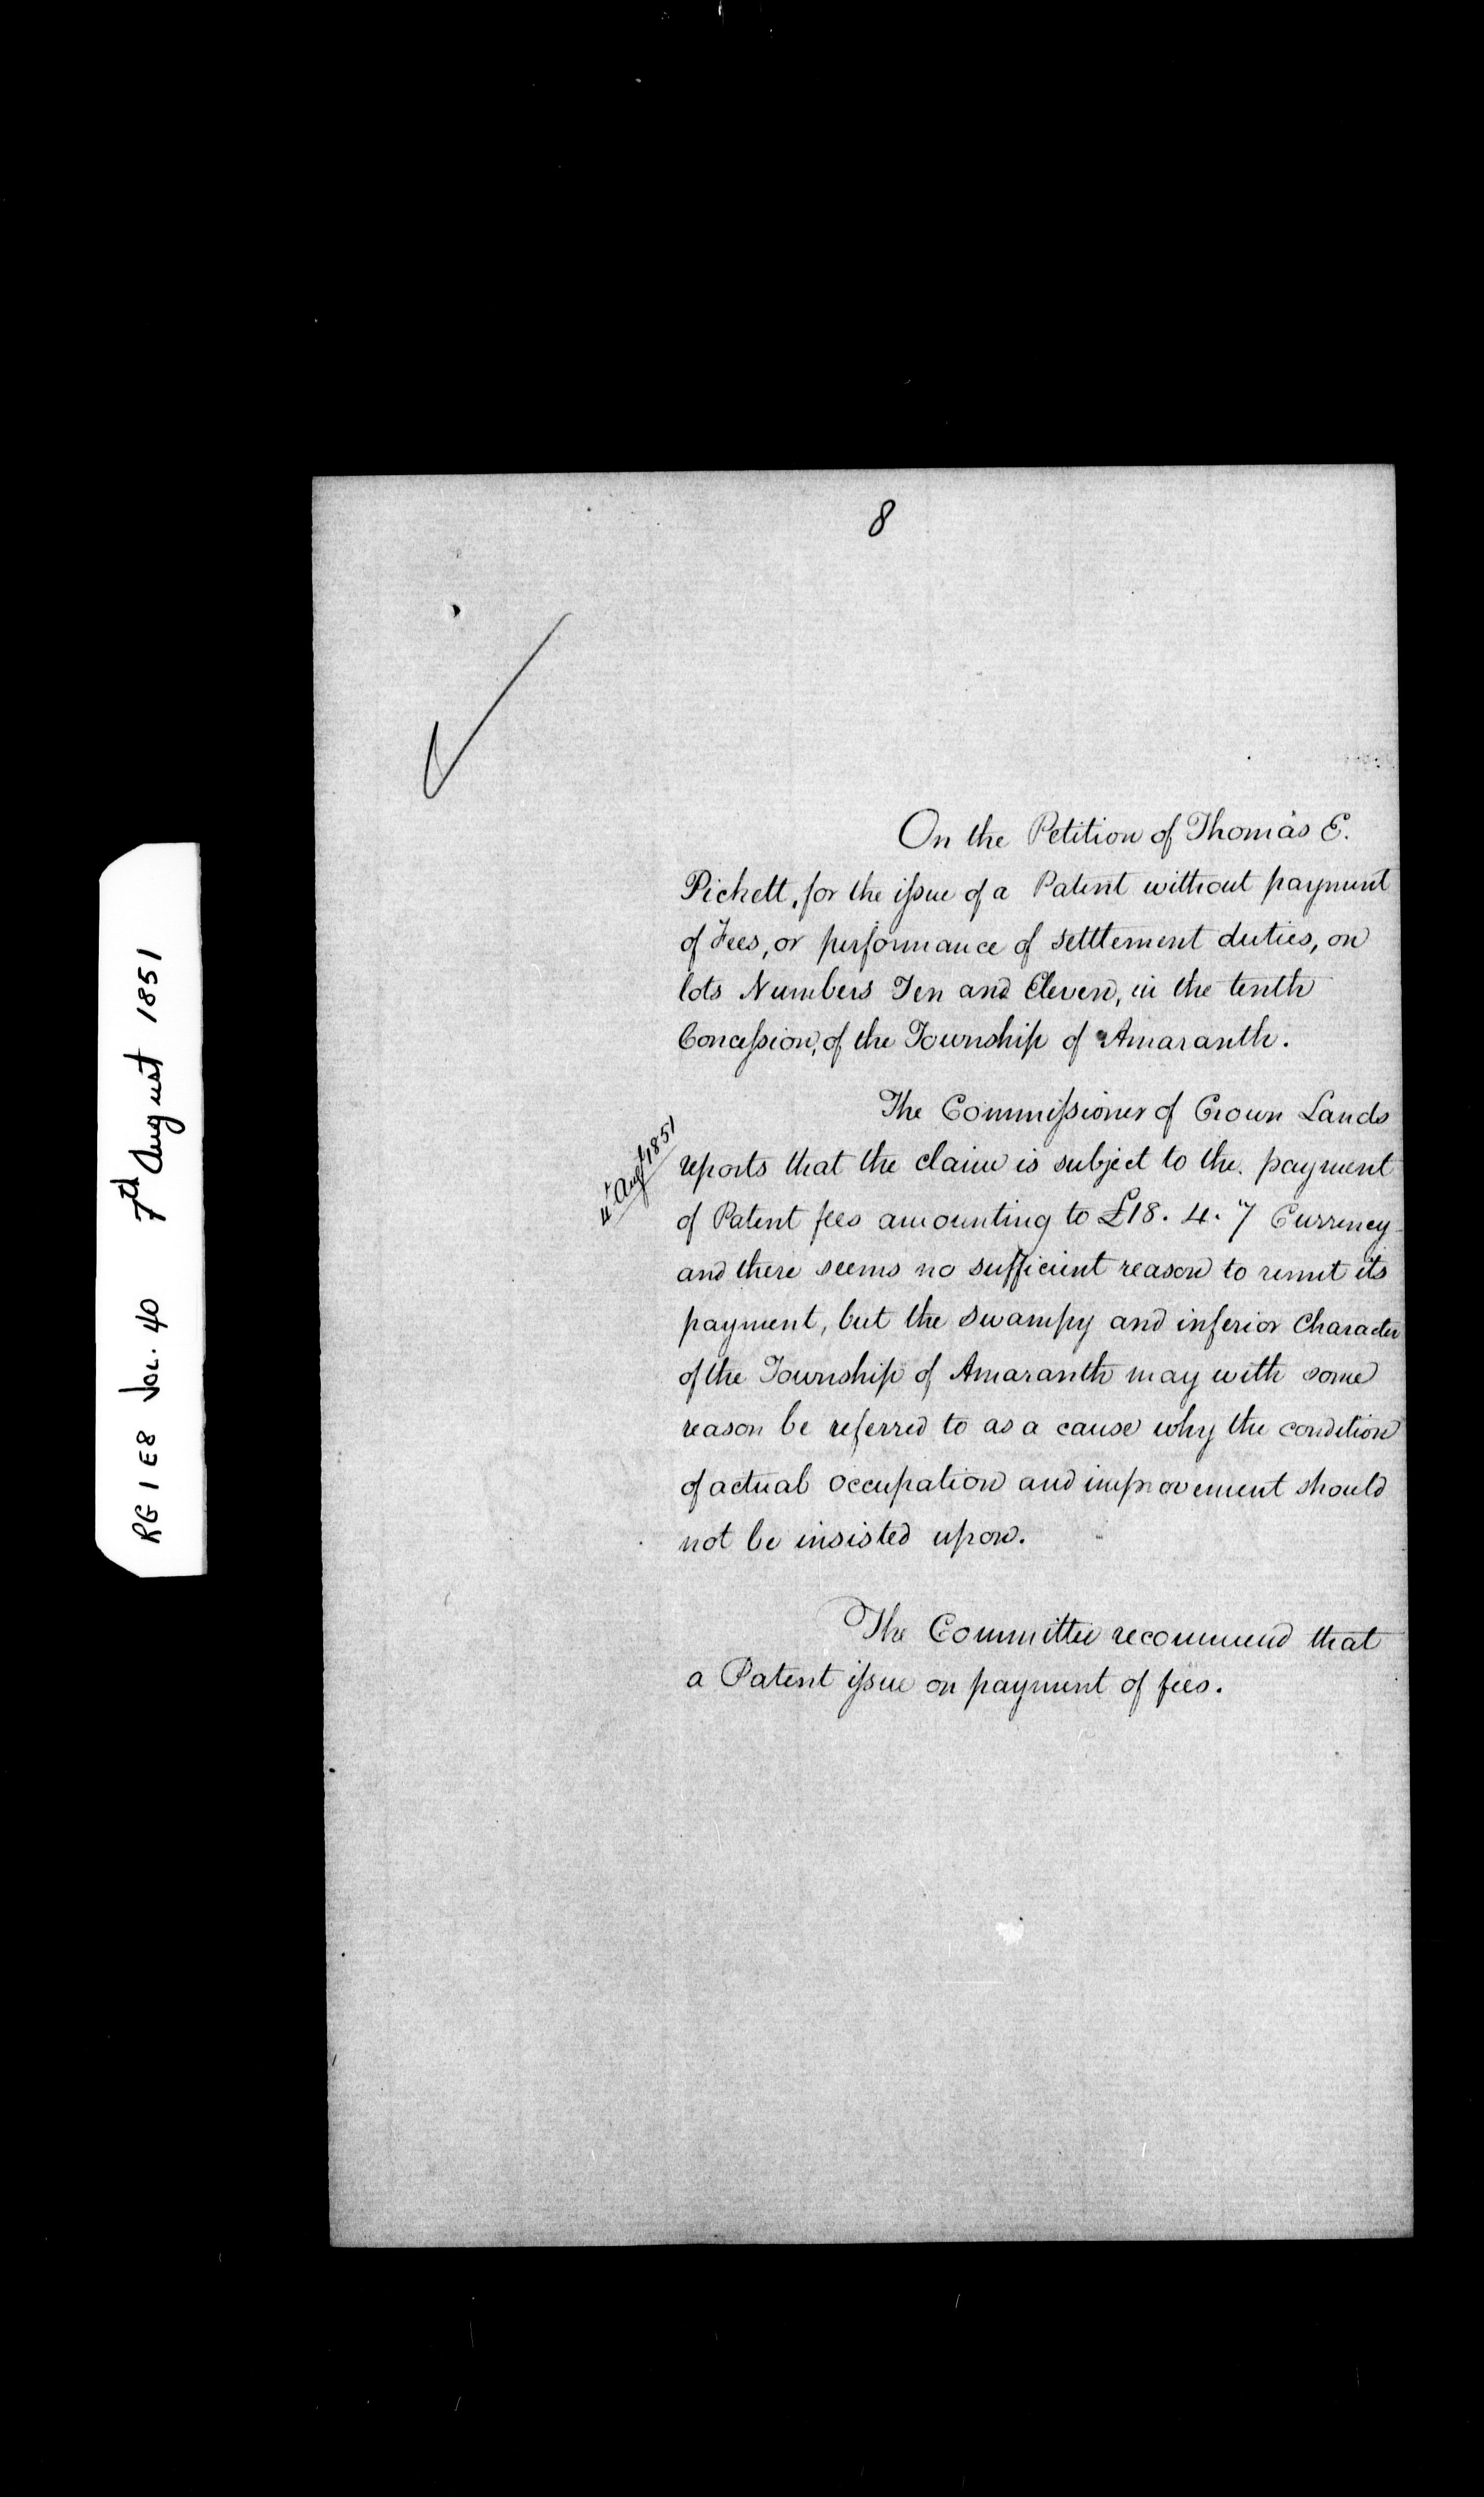 8
On the Petition of Thomas E.
Pickett, for the issue of a Patent without payment
of Fees, or performance of settlement duties, on
lots Numbers Ten and Eleven, in the tenth
Concession, of the Township of Amaranth.
The Commissioner of Crown Lands
4th Augt 1851
reports that the claim is subject to the payment
of Patent fees amounting to £18. 4. 7 Currency
and there seems no sufficient reason to remit its
payment, but the swampy and inferior Character
of the Township of Amaranth may with some
reason be referred to as a cause why the condition
of actual occupation and improvement should
not be insisted upon.
The Committee recommend that
a Patent issue on payment of fees.
RG 1 E8 Vol. 40 7th August 1851